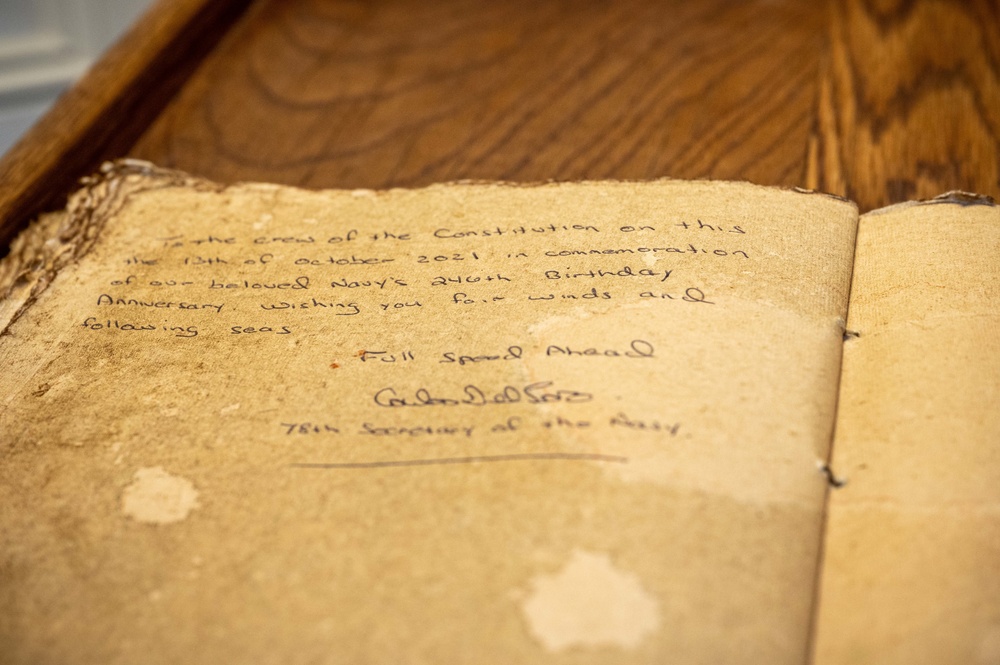 To the crew of the Constitution on this
the 13th of October 2021 in commemoration
of our beloved Navy's 246th Birthday
Anniversary. Wishing you fair winds and
following seas
Full Speed Ahead
Carlos Del Toro
78th Secretary of the Navy.